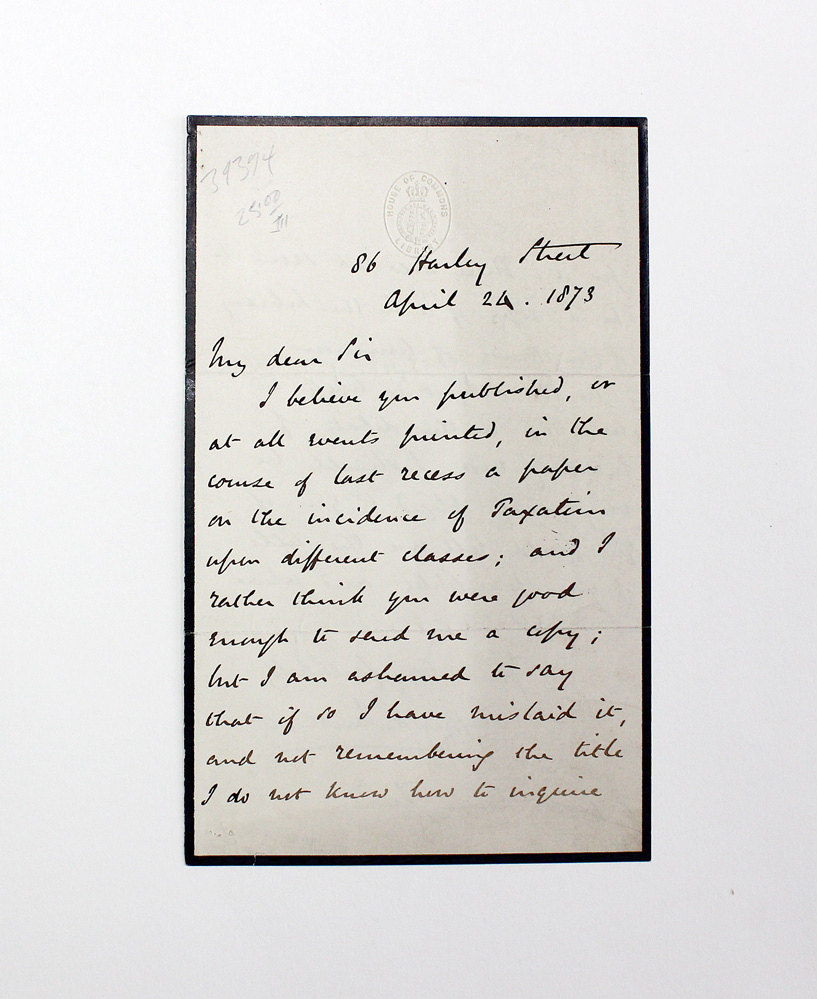 39394
25.00
III
HOUSE OF COMMONS
LIBRARY
86 Harley Street
April 24. 1873
My dear Sir
I believe you published, or
at all events printed, in the
course of last recess a paper
on the incidence of Taxation
upon different classes; and I
rather think you were good
enough to send me a copy;
but I am ashamed to say
that if so I have mislaid it,
and not remembering the title
I do not know how to inquire